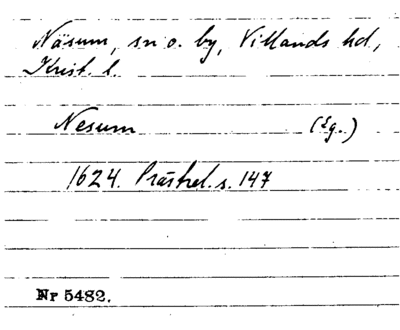 Näsum, sn o. by, Villands hd,
Krist. l.
Nesum (Eg.)
1624. Prästrel. s. 147
Nr 5482.